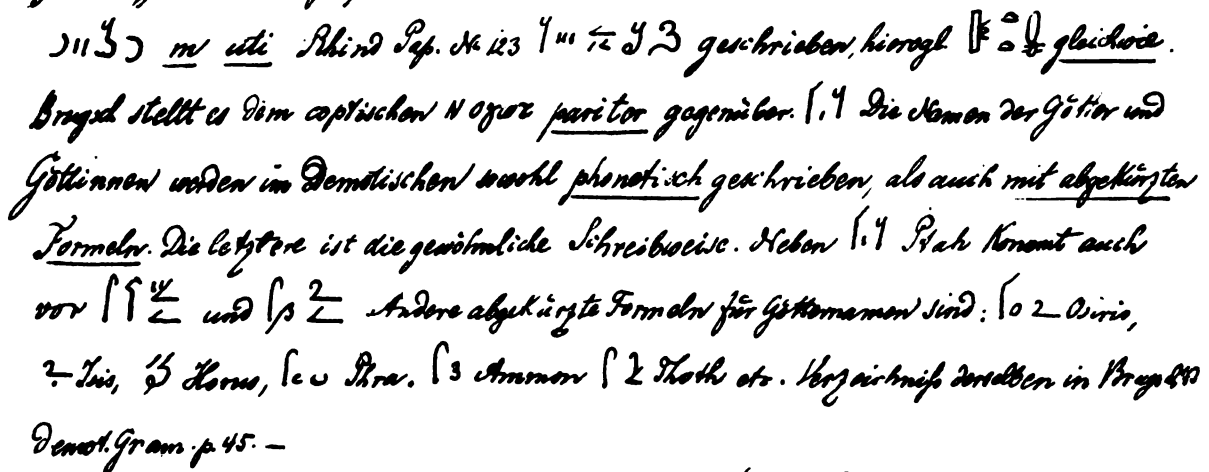 m uti Rhind Pap. No 123 geschrieben, hierogl. gleichwie.
Brugsch stellt es dem coptischen pariter gegenüber. Die Namen der Götter und
Göttinnen werden im Demotischen sowohl phonetisch geschrieben, als auch mit abgekürzten
Formeln. Die letztere ist die gewöhnliche Schreibweise. Neben Ptah kommt auch
vor und Andere abgekürzte Formeln für Götternamen sind: Osiris,
Isis, Horus, Phra. Ammon Thoth etc. Verzeichniß derselben in
demot. Gram. p. 45. —